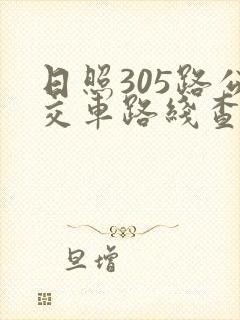 日照305路公
交车路线查
旦增